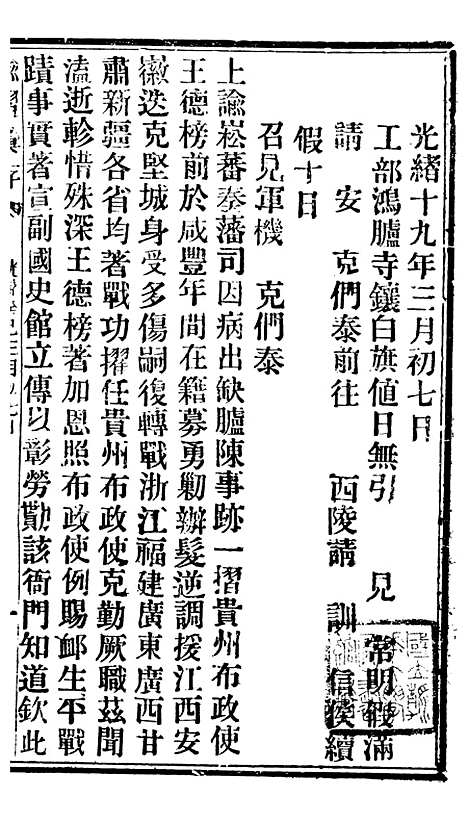 光緒十九年三月初七日
工部鴻臚寺鑲白旗值日無引　見　常明假滿
請　安　克們泰前往　西陵請　訓　信恪續
假十日
召見軍機　克們泰
上諭崧蕃奏藩司因病出缺臚陳事跡一摺貴州布政使
王德榜前於咸豐年間在籍募勇勦辦髮逆調援江西安
徽迭克堅城身受多傷嗣復轉戰浙江福建廣東廣西甘
肅新疆各省均著戰功擢任貴州布政使克勤厥職茲聞
溘逝軫惜殊深王德榜著加恩照布政使例賜卹生平戰
蹟事實著宣副國史館立傳以彰勞勩該衙門知道欽此